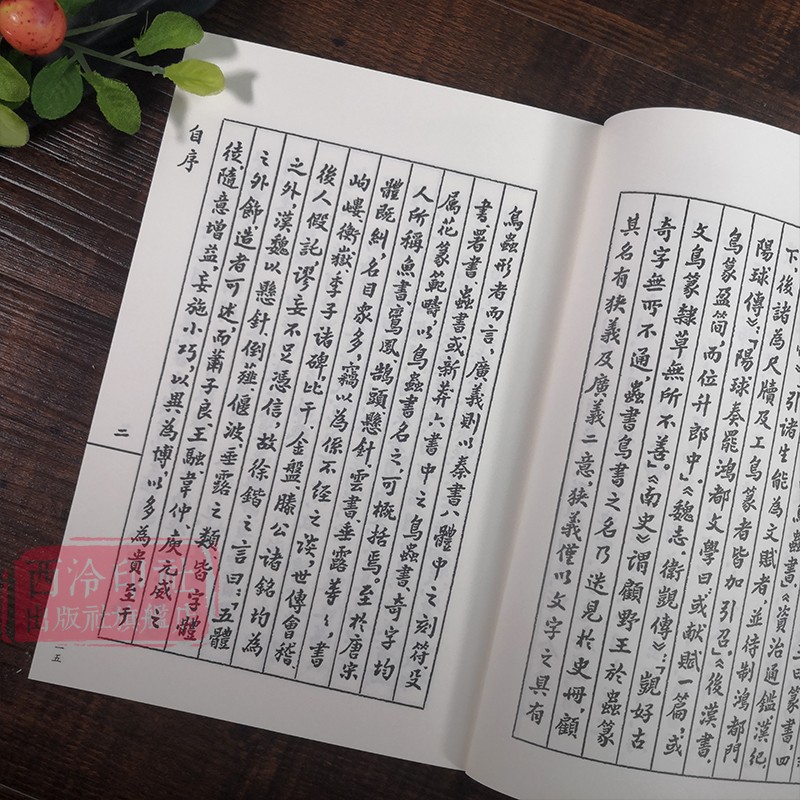 引諸生能為文賦者並待制鴻都門
下,後諸為尺牘及工鳥篆者皆加引召。《後漢書.
陽球傳》:「陽球奏罷鴻都文學曰:或献賦一篇,或
鳥篆盈简,而位升郎中。《魏志.衛覬傳》:「覬好古
文鳥篆隸草無所不善。」《南史》謂顧野王於蟲篆
奇字無所不通,蟲書鳥書之名乃迭見於史冊,顧
其名有狭義及廣義二意,狭義僅以文字之具有
鳥蟲形者而言,廣義則以秦書八體中之刻符、殳
書、署書、蟲書或新莽六書中之鳥蟲書、奇字均
屬花篆範疇,以鳥蟲書名之,可概括焉。至於唐宋
人所稱魚書、鸞鳳、鵠頭、懸針、雲書、垂露等等,書
體既糾,名目眾多,竊以為係不經之談,世傳會稽、
岣嶁、衡嶽、季子諸碑,比干、金盤、滕公諸銘均為
後人假託,謬妄不足憑信,故徐鍇之言曰:「五體
之外,漢魏以懸針、倒薤、偃波、垂露之類皆字體
之外飾,造者可述,而蕭子良、王融、韋仲、庾元威之
徒,隨意增益,妄施小巧,以異為博,以多為貴,至于
自序
二
一五
西泠印社
出版社旗艦店